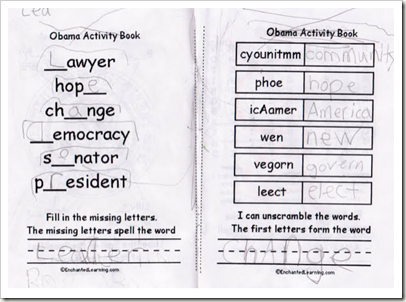 Lea
Obama Activity Book
Lawyer
hope
change
democracy
senator
president
Fill in the missing letters.
The missing letters spell the word
Leader
©EnchantedLearning.com
Obama Activity Book
cyounitmm community
phoe hope
icAamer America
wen new
vegorn govern
leect elect
I can unscramble the words.
The first letters form the word
change
©EnchantedLearning.com